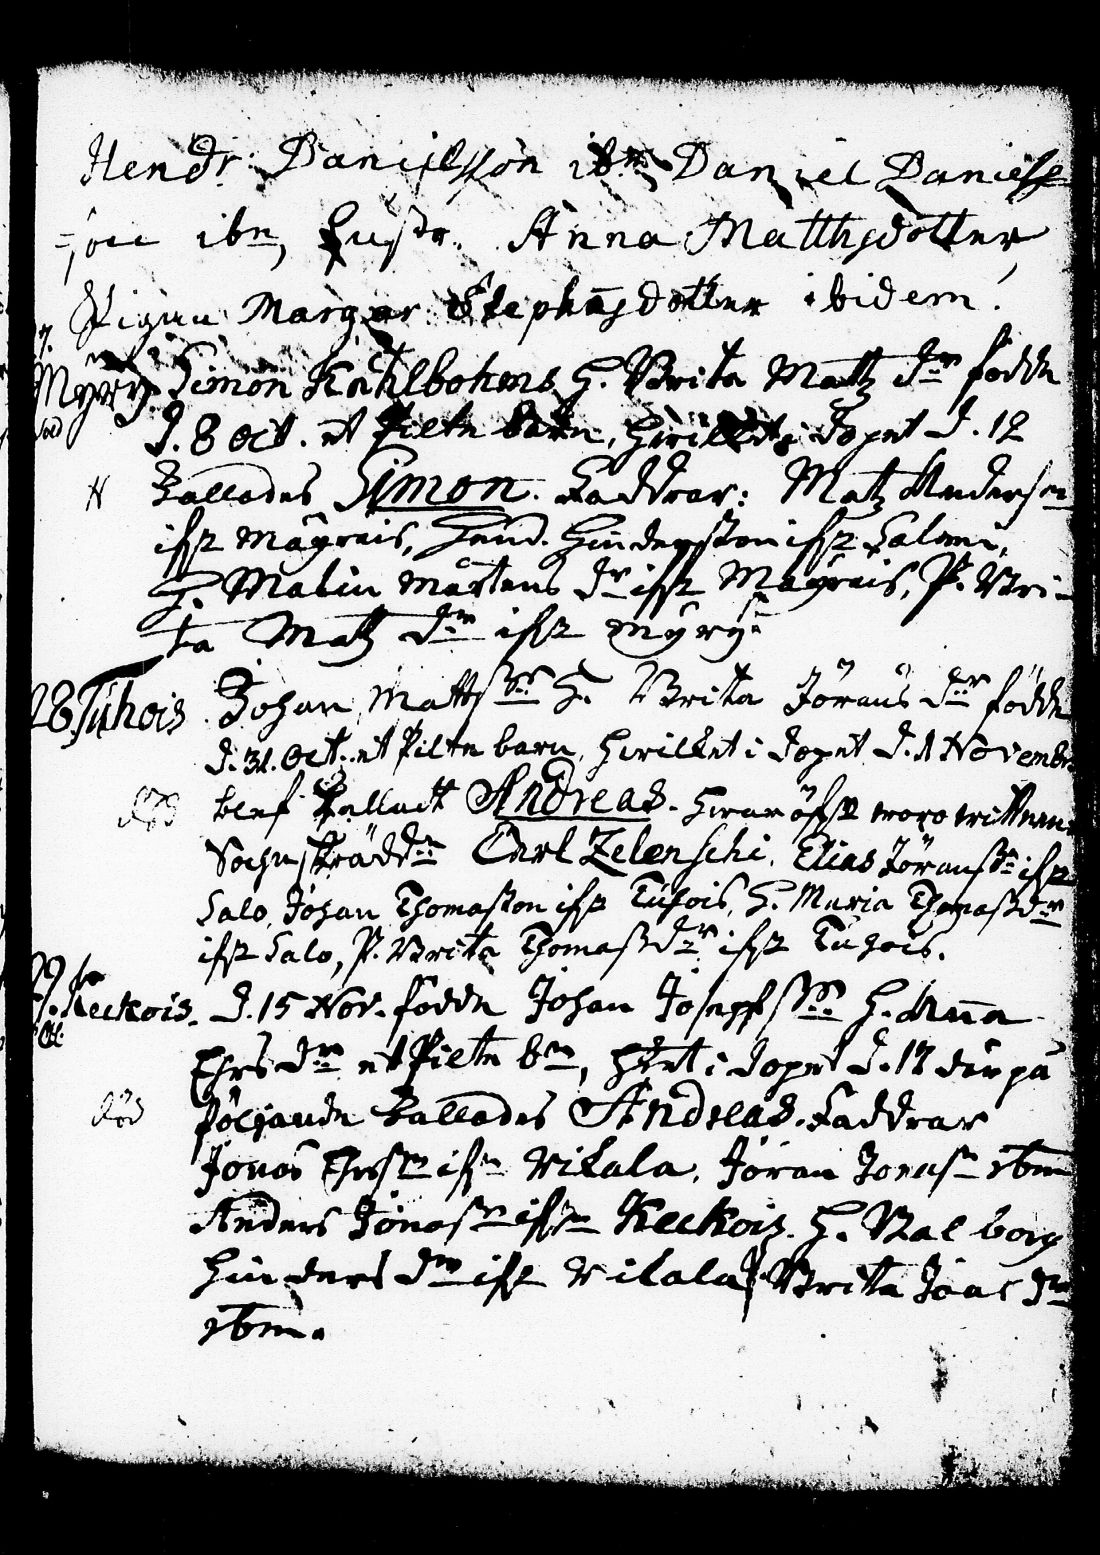 Hendr: Danielsson ibm Daniel Daniels
=son ibm, Hustr. Anna Matthsdotter
Pigan Margar Stephansdotter ibidem.
Myry. Simon Kahlbohms H. Brita Matz dr födde
d. 8 Oct. et Pilte barn, hwilket i dopet d. 12
kallades Simon. Faddrar: Matz Anderson
ifr Mäyrais, Hend. Hindersson ifr Salmi,
H. Malin Mårtens dr ifr Mäyrais, P. Bri-
ta Matz dr ifr Myry
28 Tuhois. Johan Mattss. H. Brita Jörans dr födde
d. 31. Oct. et Pilte barn, hwilket i dopet d. 1 Novembr
blef kalladt Andreas. Hwar öfr woro wittnen
Sochnskrädd. Carl Zelenschi, Elias Jöranss. ifr
Salo, Johan Thomasson ifr Tuhois, H. Maria Thomasdr
ifr Salo, P. Brita Thomasdr ifr Tuhois.
Keckois. d. 15 Nov. födde Johan Josephss. H. Anna
Ehrsdr et Pilte bn, hket i dopet d. 17 der på
följande kallades Andreas. Faddrar
Jonas Ehrsn ifr Wikala, Jöran Jonasn ibm
Anders Jonasn ifr Keckois. H. Walborg
Hinders dr ifr Wikala P. Brita Joas dr
ibm.